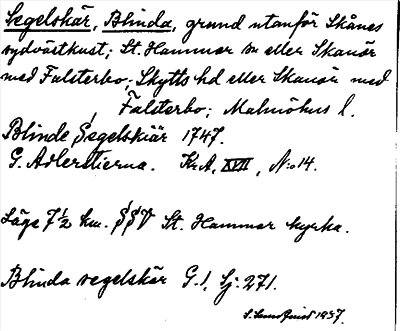 Segelskär, Blinda, grund utanför Skånes
sydvästkust; St. Hammar sn eller Skanör
med Falsterbo; Skytts hd eller Skanör med
Falsterbo; Malmöhus l.
Blinde Segelskiär 1747.
G. Adlerstierna. Kr.A. XVII, N:o 14.
Läge 7½ km. SSV St. Hammar kyrka.
Blinda segelskär G.1, Sj. 271.
1937.